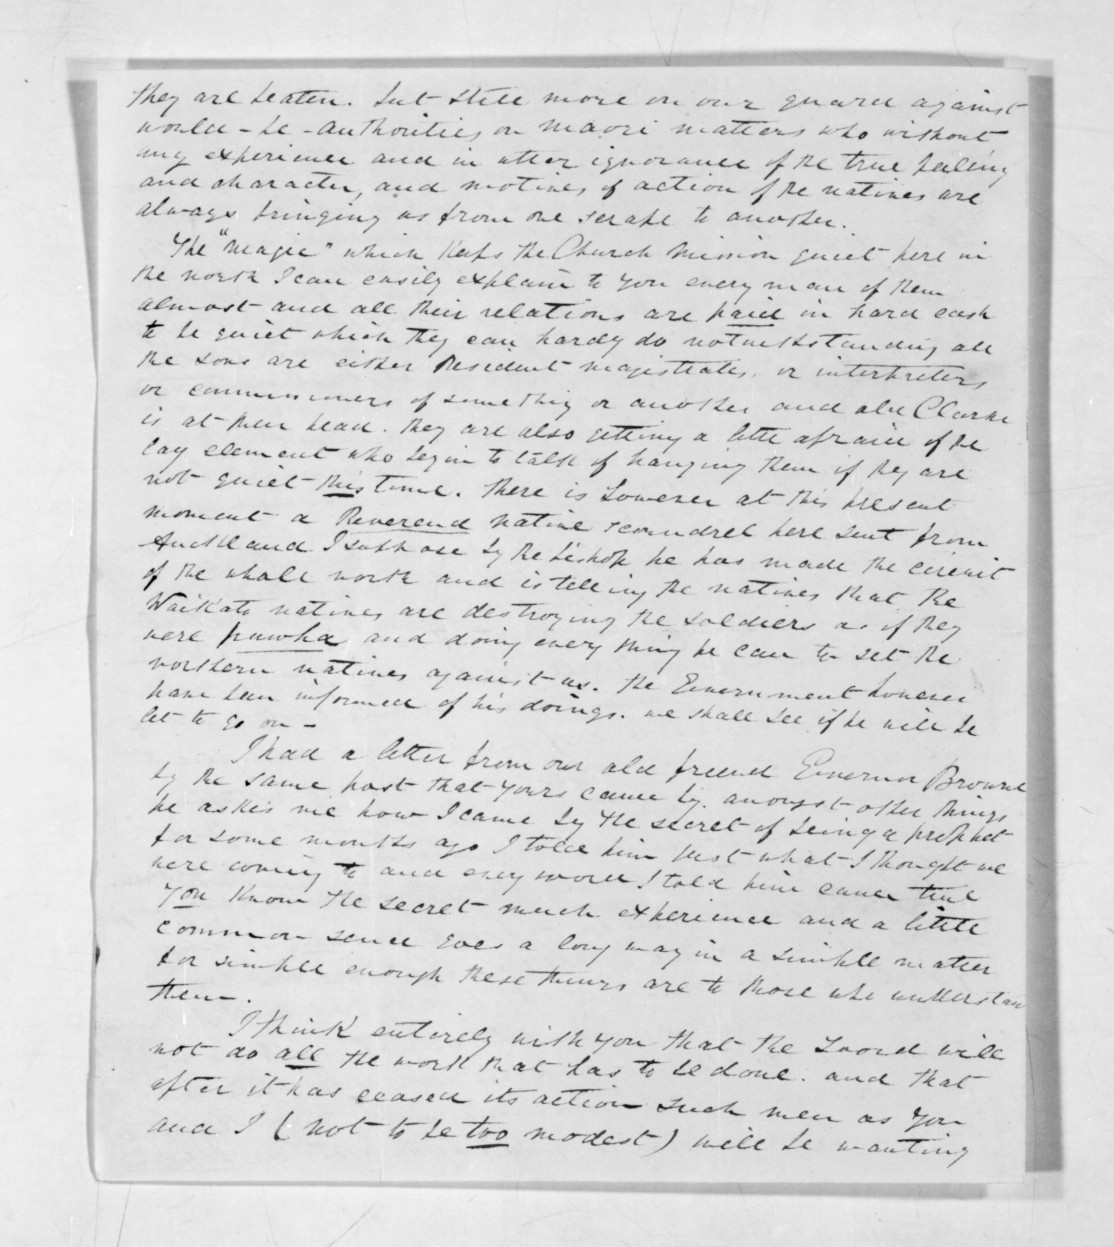 they are beaten. but still more on our guard against
would-be-authorities on maori matters who without
any experience and in utter ignorance of the true feeling
and character, and motives of action of the natives are
always bringing us from one scrape to another.
The "magic" which keeps the Church mission quiet here in
the north I can easily explain to you every man of them
almost and all their relations are paid in hard cash
to be quiet which they can hardly do notwithstanding all
the sons are either Resident magistrates. or interpreters
or commissioners of something or another and old Clarke
is at their head. they are also getting a little afraid of the
lay element who begin to talk of hanging them if they are
not quiet this time. there is however at this present
moment a Reverend native scoundrel here sent from
Auckland I suppose by the bishop he has made the circuit
of the whole north and is telling the natives that the
Waikato natives are destroying the soldiers as if they
were pawha and doing every thing he can to set the
northern natives against us. the Government however
have been informed of his doings. we shall see if he will be
let to go on –
I had a letter from our old friend Governor Browne
by the same post that yours came by. amongst other things
he asks me how I came by the secret of being a prophet
for some months ago I told him just what I thought we
were coming to and every word I told him came true
you know the secret much experience and a little
common sence goes a long way in a simple matter
for simple enough these things are to those who understand
them –.
I think entirely with you that the sword will
not do all the work that has to be done. and that
after it has ceased its action such men as you
and I (not to be too modest) will be wanting